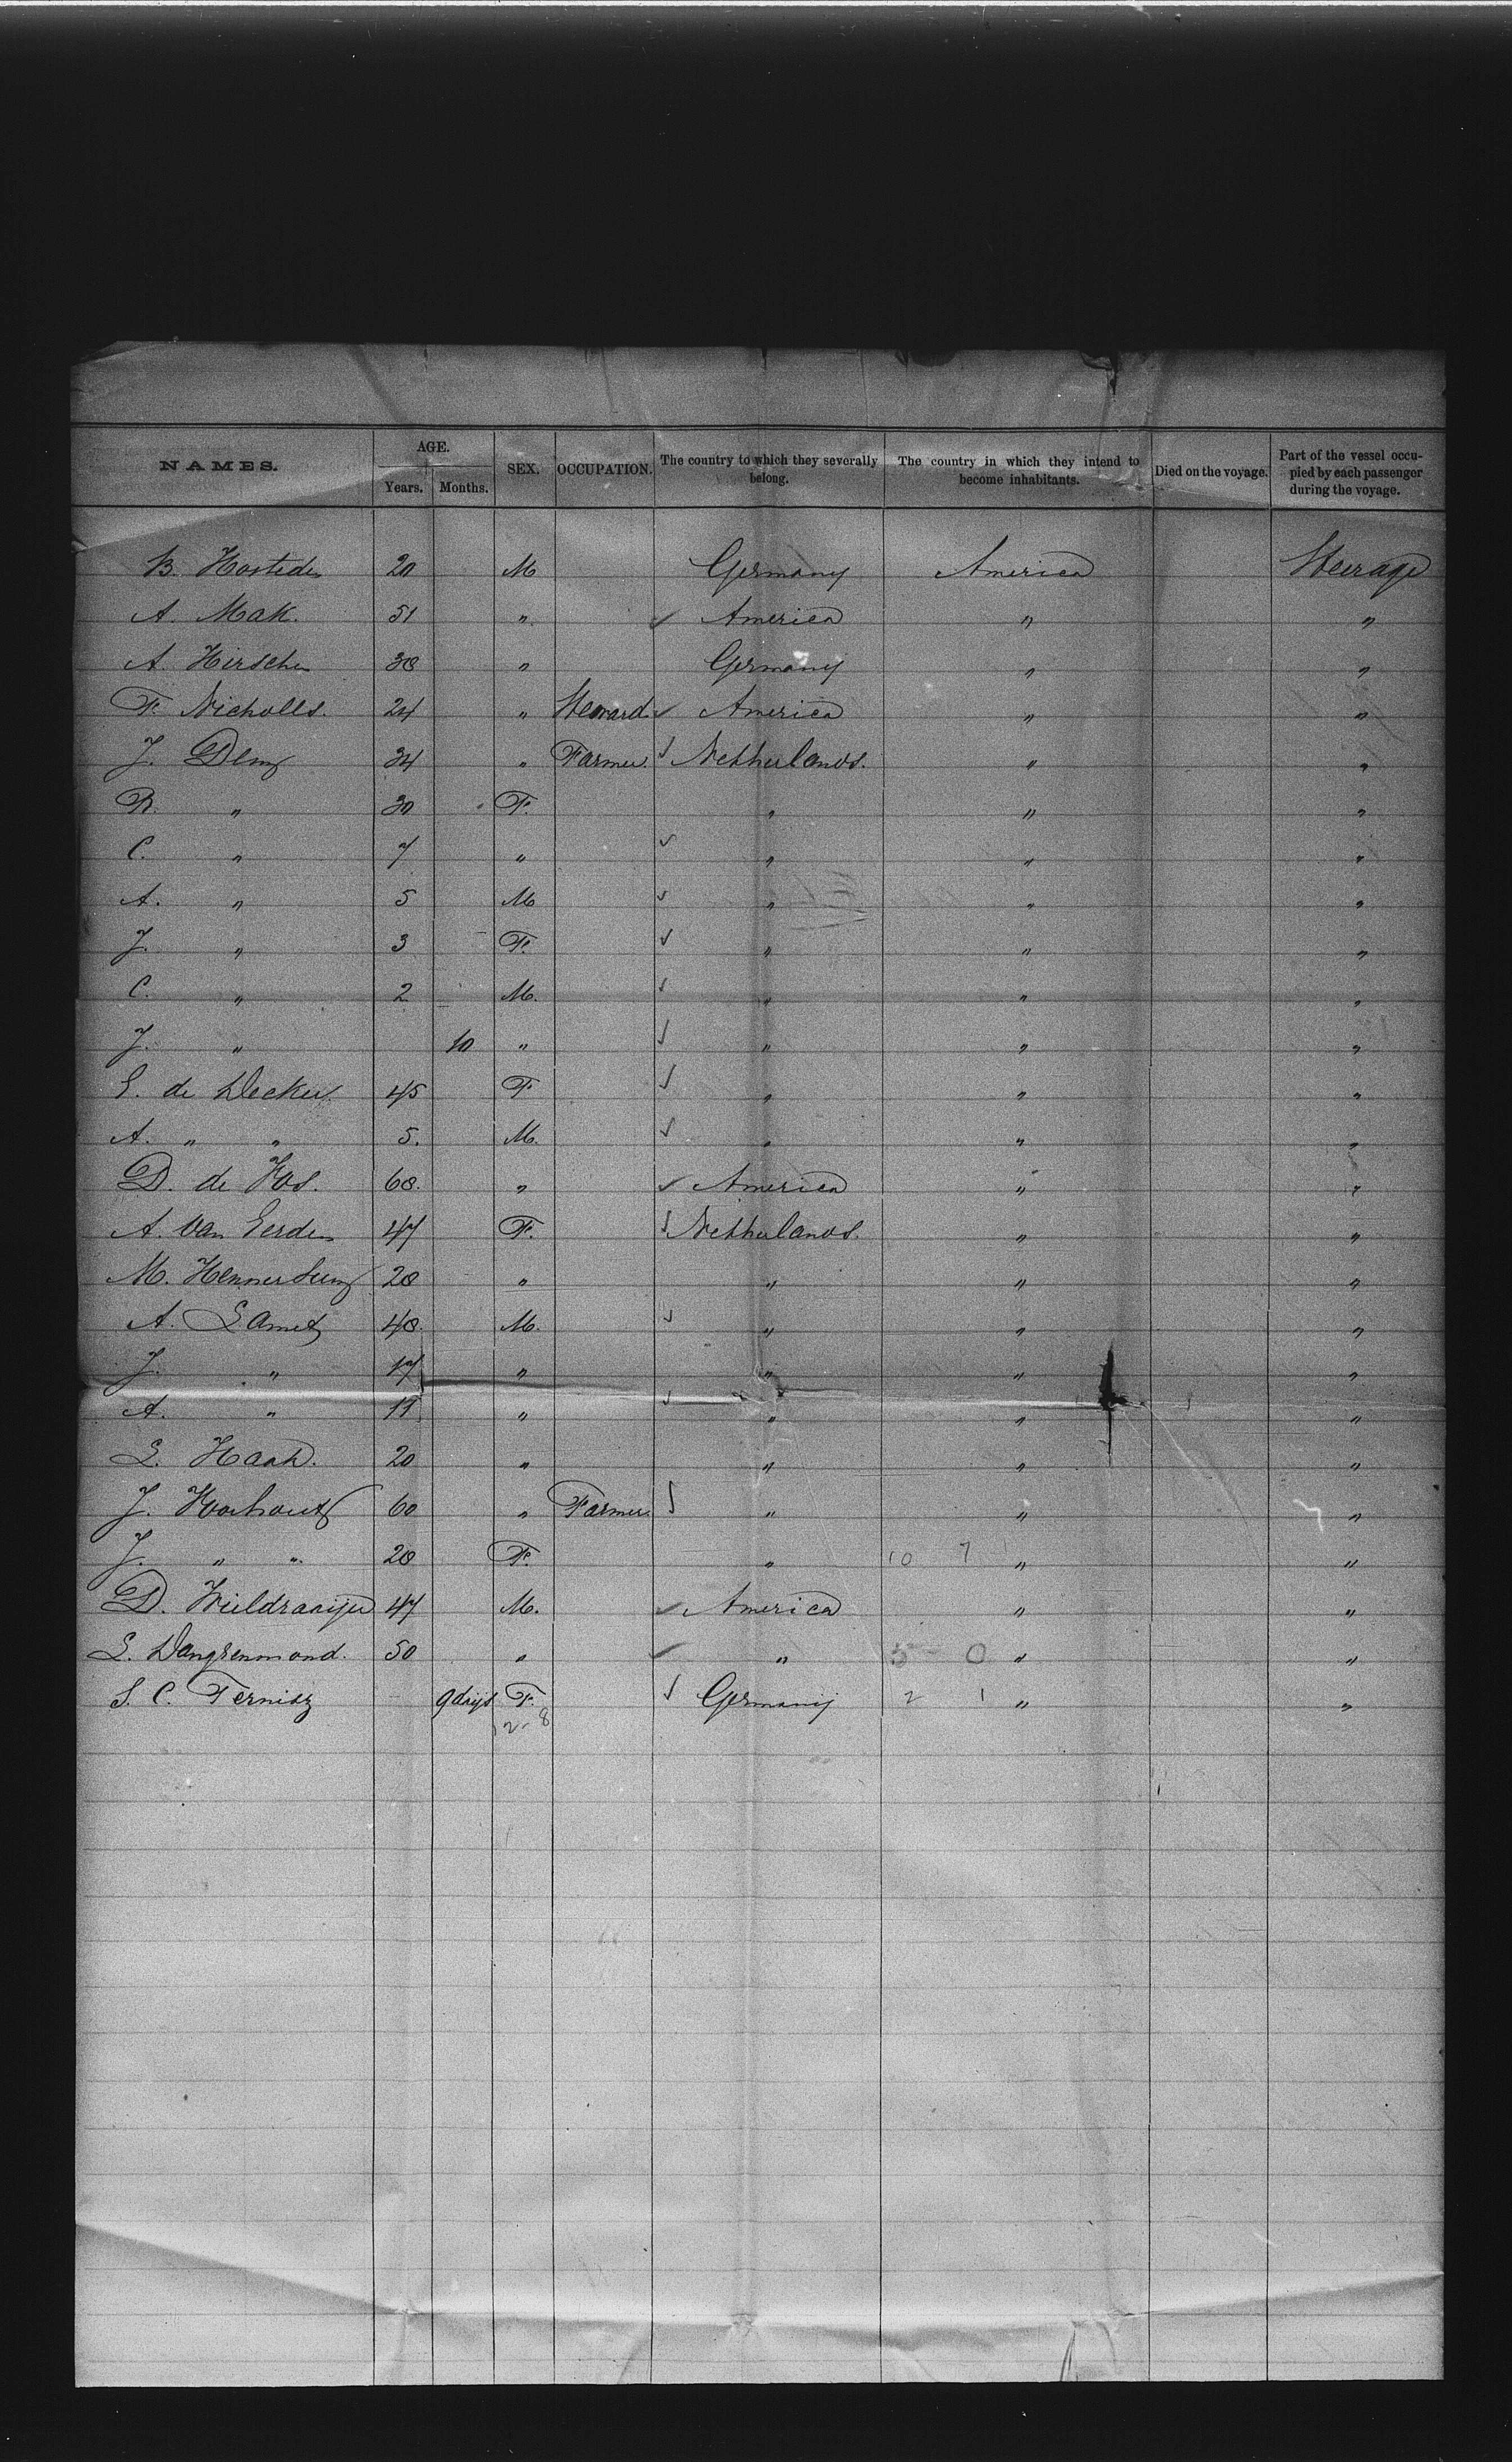 NAMES. AGE. Years. Months. SEX. OCCUPATION. The country to which they severally belong. The country in which they intend to become inhabitants. Died on the voyage. Part of the vessel occupied by each passenger during the voyage.
B. 20 M Germany America Steerage
A. Mak. 51 " America " "
A. Hirsche 38 " Germany " "
F. Nicholls. 24 " Steward America " "
J. 34 " Farmer. Netherlands. " "
R. " 30 F. " " "
C. " 7 " " " "
A. " 5 M " " "
J. " 3 F. " " "
C. " 2 M. " " "
J. " 10 " " " "
E. de Decker 45 F " " "
A. " " 5. M. " " "
D. de Vos. 60. " America " "
A. van Eerden 47 F. Netherlands. " "
M. 28 " " " "
A. 48. M. " " "
J. " 17 " " " "
A. " 11 " " " "
L. Haak. 20 " " " "
J. 60 " Farmer. " " "
J. " " 28 F. " 10 7 " "
D. 47 M. America " "
L. Dangremond. 50 " " 5 0 " "
S. C. 9 days F. Germany 2 1 " "
12-8